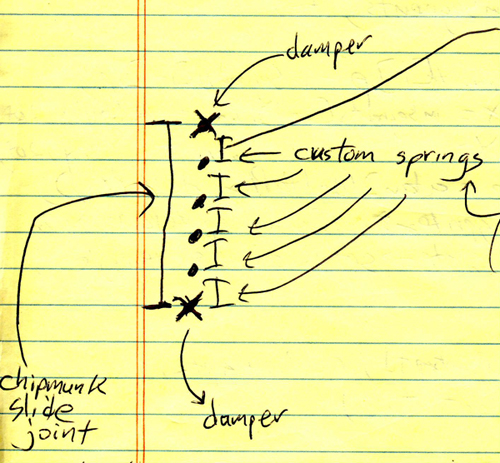 damper
custom springs
chipmunk
slide
joint
damper